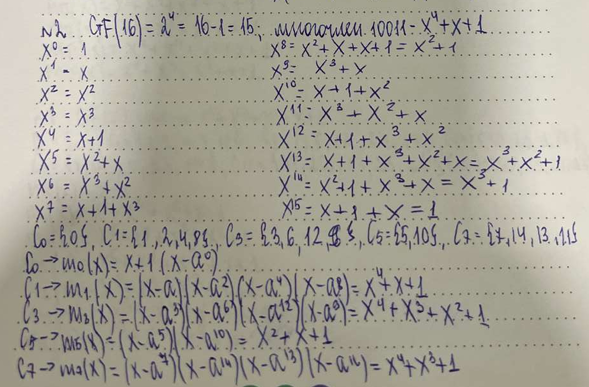 №2. GF(16) = 2⁴ = 16-1 = 15; многочлен 10011 - x⁴+x+1
x⁰ = 1
x¹ = x
x² = x²
x³ = x³
x⁴ = x+1
x⁵ = x²+x
x⁶ = x³+x²
x⁷ = x+1+x³
x⁸ = x²+x+x+1 = x²+1
x⁹ = x³+x
x¹⁰ = x+1+x²
x¹¹ = x³+x²+x
x¹² = x+1+x³+x²
x¹³ = x+1+x³+x²+x = x³+x²+1
x¹⁴ = x²+1+x³+x = x³+1
x¹⁵ = x+1+x = 1
C₀={0}, C1={1,2,4,8}, C3={3,6,12,9}, C5={5,10}, C7={7,14,13,11}
C₀ → m₀(x) = x+1 (x-a⁰)
C1 → m₁(x) = (x-a)(x-a²)(x-a⁴)(x-a⁸) = x⁴+x+1
C3 → m₃(x) = (x-a³)(x-a⁶)(x-a¹²)(x-a⁹) = x⁴+x³+x²+1
C5 → m₅(x) = (x-a⁵)(x-a¹⁰) = x²+x+1
C7 → m₇(x) = (x-a⁷)(x-a¹⁴)(x-a¹³)(x-a¹¹) = x⁴+x³+1